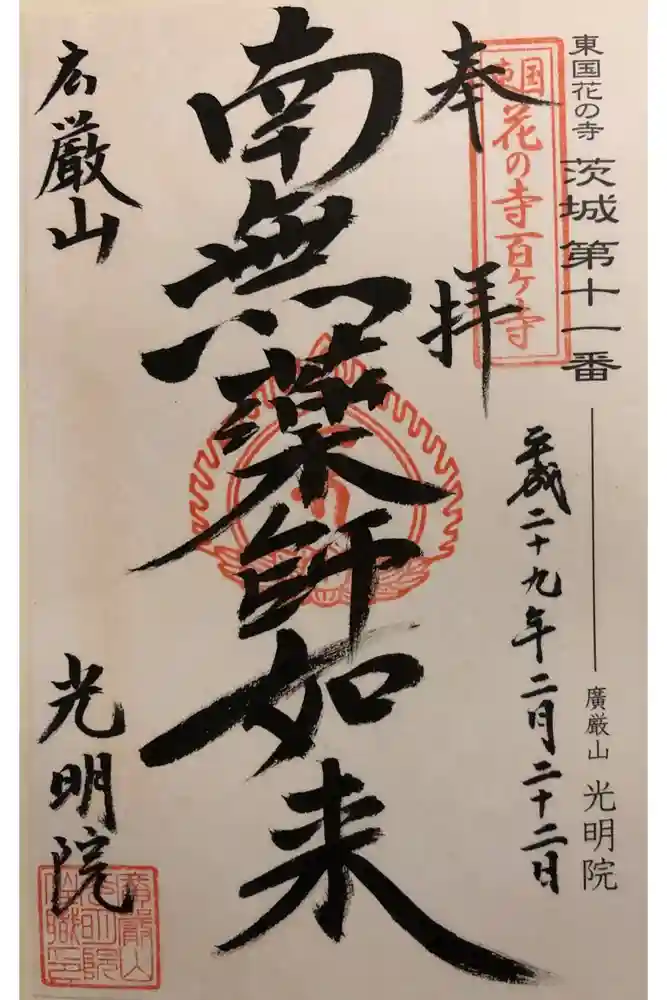 東国花の寺 茨城 第十一番
廣厳山 光明院
東国
花の寺百ケ寺
奉拝
平成二十九年二月二十二日
南無薬師如来
広厳山
光明院